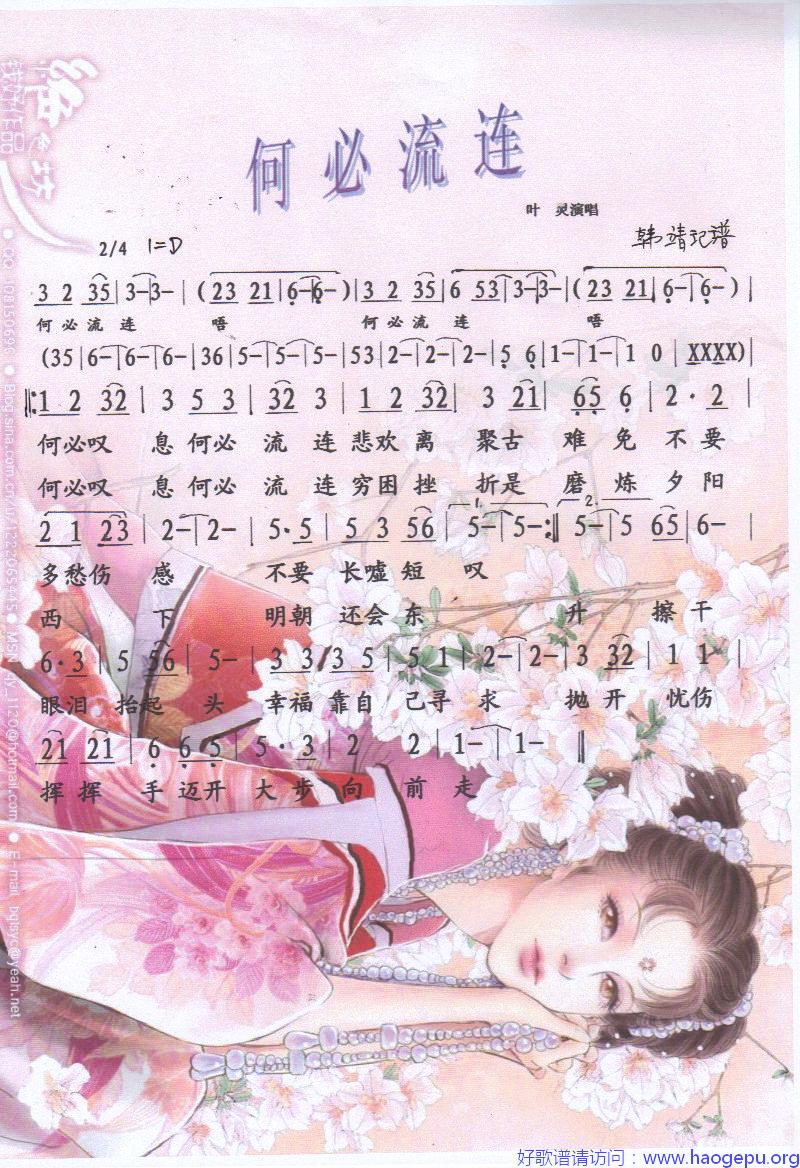 何必流连
叶 灵演唱
2/4 1=D 韩靖记谱
3 2 35|3-|3-|(23 21|6-|6-)|3 2 35|6 53|3-|3-|(23 21|6-|6-)|
何必流连 唔 何必流连 唔
(35|6-|6-|6-|36|5-|5-|5-|53|2-|2-|2-|5 6|1-|1-|1 0|XXXX)|
‖:1 2 32|3 5 3|32 3|1 2 32|3 21|65 6|2·2|
何必叹 息何必 流 连悲欢离 聚古 难 免 不 要
何必叹 息何必 流 连穷困挫 折是 磨 炼 夕 阳
2 1 23|2-|2-|5·5|5 3 56|1. 5-|5-:‖2. 5-|5 65|6-|
多愁伤 感 不要 长嘘短 叹
西 下 明朝 还会东 升 擦干
6·3|5 56|5-|3 3/3 5|5 1|2-|2-|3 32|1 1·|
眼泪 抬起 头 幸福 靠自 己寻 求 抛开 忧伤
21 21|6 6 5|5·3|2 2|1-|1-‖
挥挥 手迈开 大步向 前 走
绝色坊
QQ
Blog.sina.com.cn
MSN
@hotmail.com
E-mail
@yeah.net
好歌谱请访问：www.haogepu.org